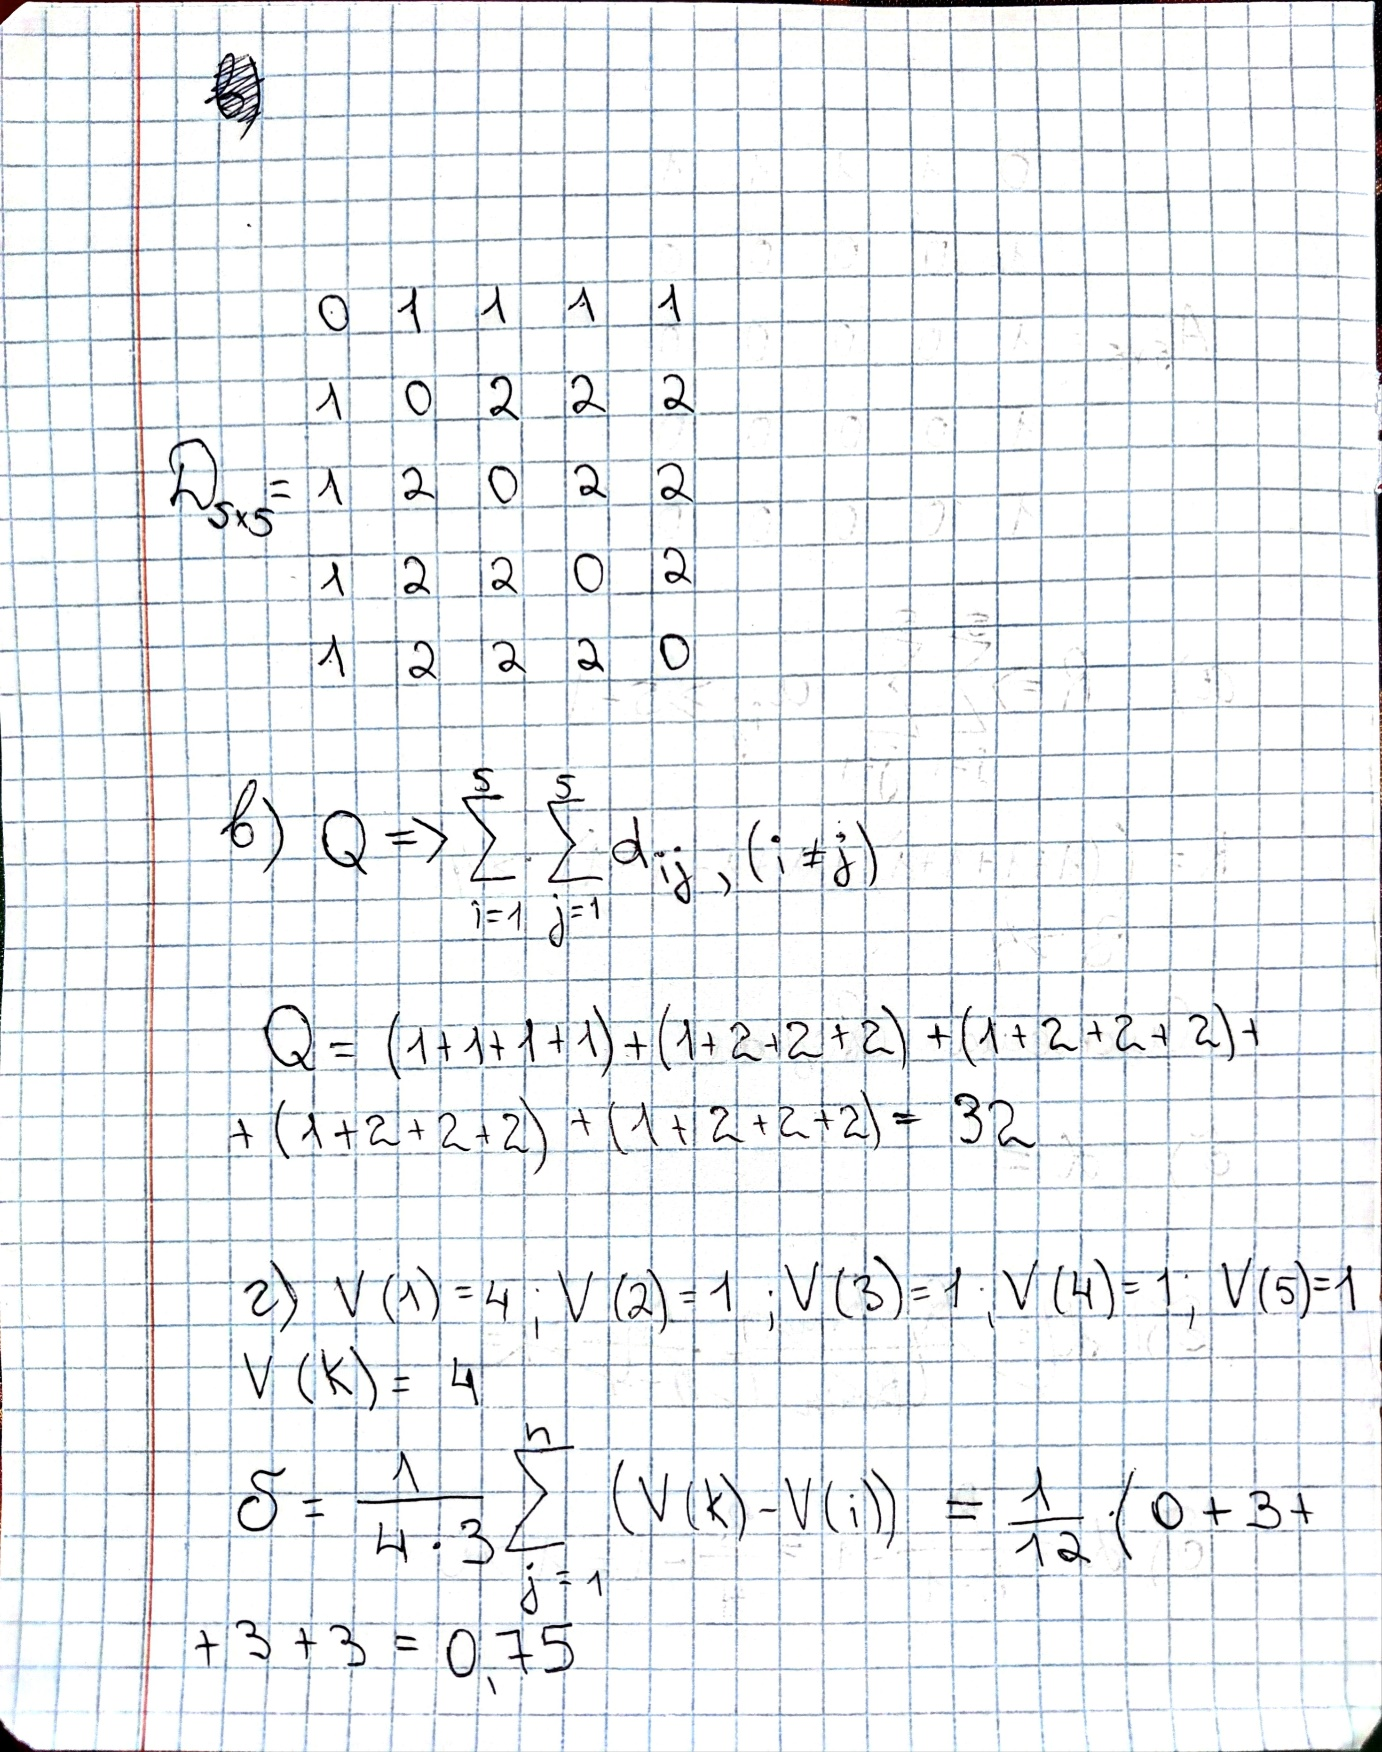 0 1 1 1 1
1 0 2 2 2
D₅ₓ₅ = 1 2 0 2 2
1 2 2 0 2
1 2 2 2 0
в) Q => ∑_{i=1}^{5} ∑_{j=1}^{5} d_{ij}, (i ≠ j)
Q = (1+1+1+1)+(1+2+2+2)+(1+2+2+2)+
+(1+2+2+2)+(1+2+2+2)= 32
г) V(1)=4; V(2)=1; V(3)=1; V(4)=1; V(5)=1
V(k)= 4
δ = \frac{1}{4·3} ∑_{j=1}^{n} (V(k)-V(i)) = \frac{1}{12}·(0+3+
+3+3 = 0,75